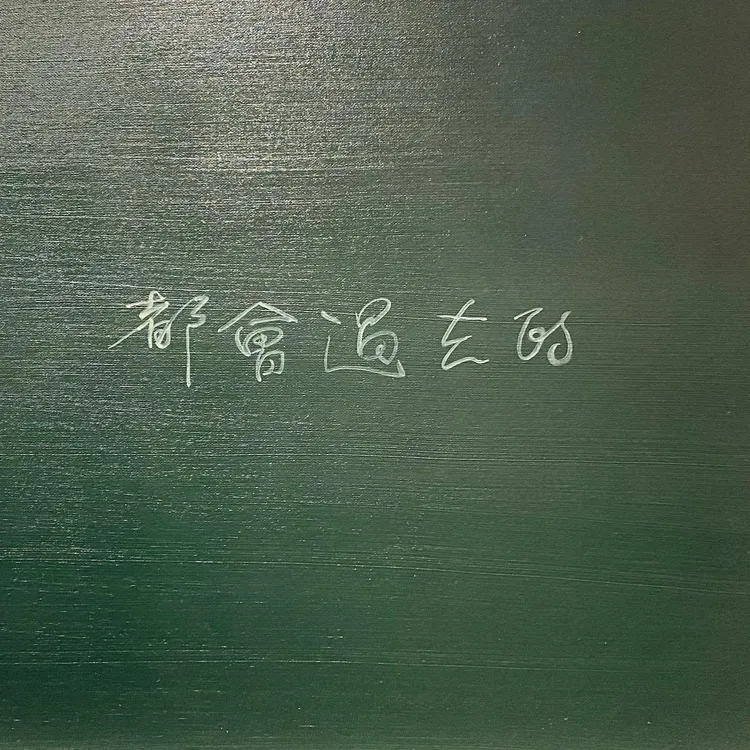 都會過去的